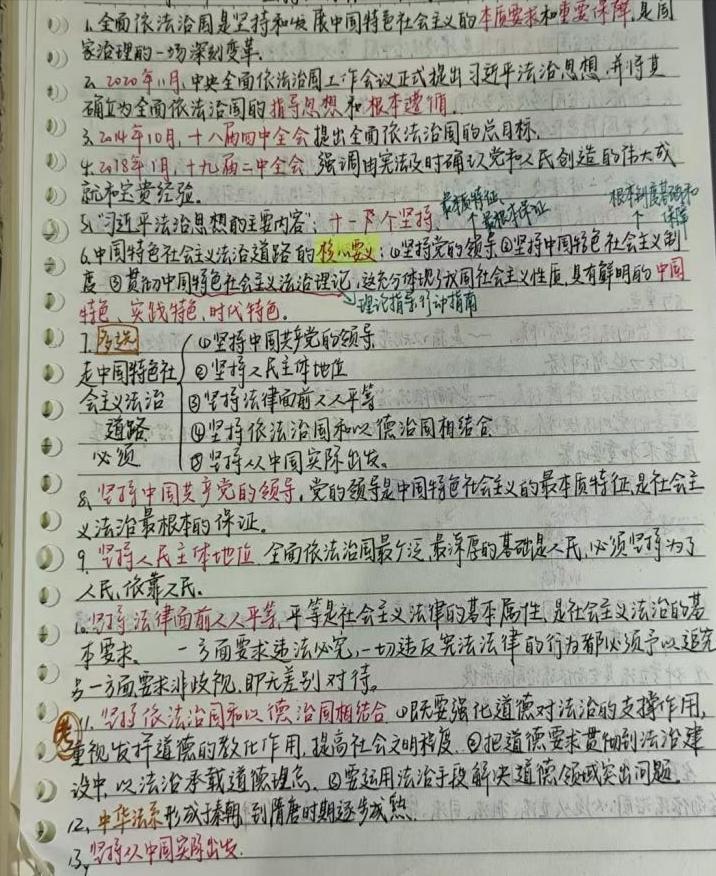 1.全面依法治国是坚持和发展中国特色社会主义的本质要求和重要保障,是国
家治理的一场深刻变革.
2.2020年11月,中央全面依法治国工作会议正式提出习近平法治思想,并将其
确立为全面依法治国的指导思想和根本遵循.
3.2014年10月,十八届四中全会提出全面依法治国的总目标.
4.2018年1月,十九届二中全会,强调由宪法及时确认党和人民创造的伟大成
就和宝贵经验.
5."习近平法治思想的主要内容":十一个坚持
最本质特征、
最根本保证
根本制度基础和
保障
6.中国特色社会主义法治道路的核心要义:①坚持党的领导②坚持中国特色社会主义制
度 ③贯彻中国特色社会主义法治理论,这充分体现了我国社会主义性质,具有鲜明的中国
特色、实践特色、时代特色.
理论指导行动指南
7.多选
走中国特色社
会主义法治
道路
必须
①坚持中国共产党的领导
②坚持人民主体地位
③坚持法律面前人人平等
④坚持依法治国和以德治国相结合
⑤坚持从中国实际出发.
8.坚持中国共产党的领导,党的领导是中国特色社会主义的最本质特征,是社会主
义法治最根本的保证.
9.坚持人民主体地位 全面依法治国最广泛、最深厚的基础是人民,必须坚持为了
人民、依靠人民.
10.坚持法律面前人人平等,平等是社会主义法律的基本属性,是社会主义法治的基
本要求. 一方面要求违法必究,一切违反宪法法律的行为都必须予以追究
另一方面,要求非歧视,即无差别对待.
11.坚持依法治国和以德治国相结合 ①既要强化道德对法治的支撑作用,
重视发挥道德的教化作用,提高社会文明程度.②把道德要求贯彻到法治建
设中,以法治承载道德理念.③要运用法治手段解决道德领域突出问题.
12.中华法系形成于秦朝,到隋唐时期逐步成熟.
13.坚持从中国实际出发.